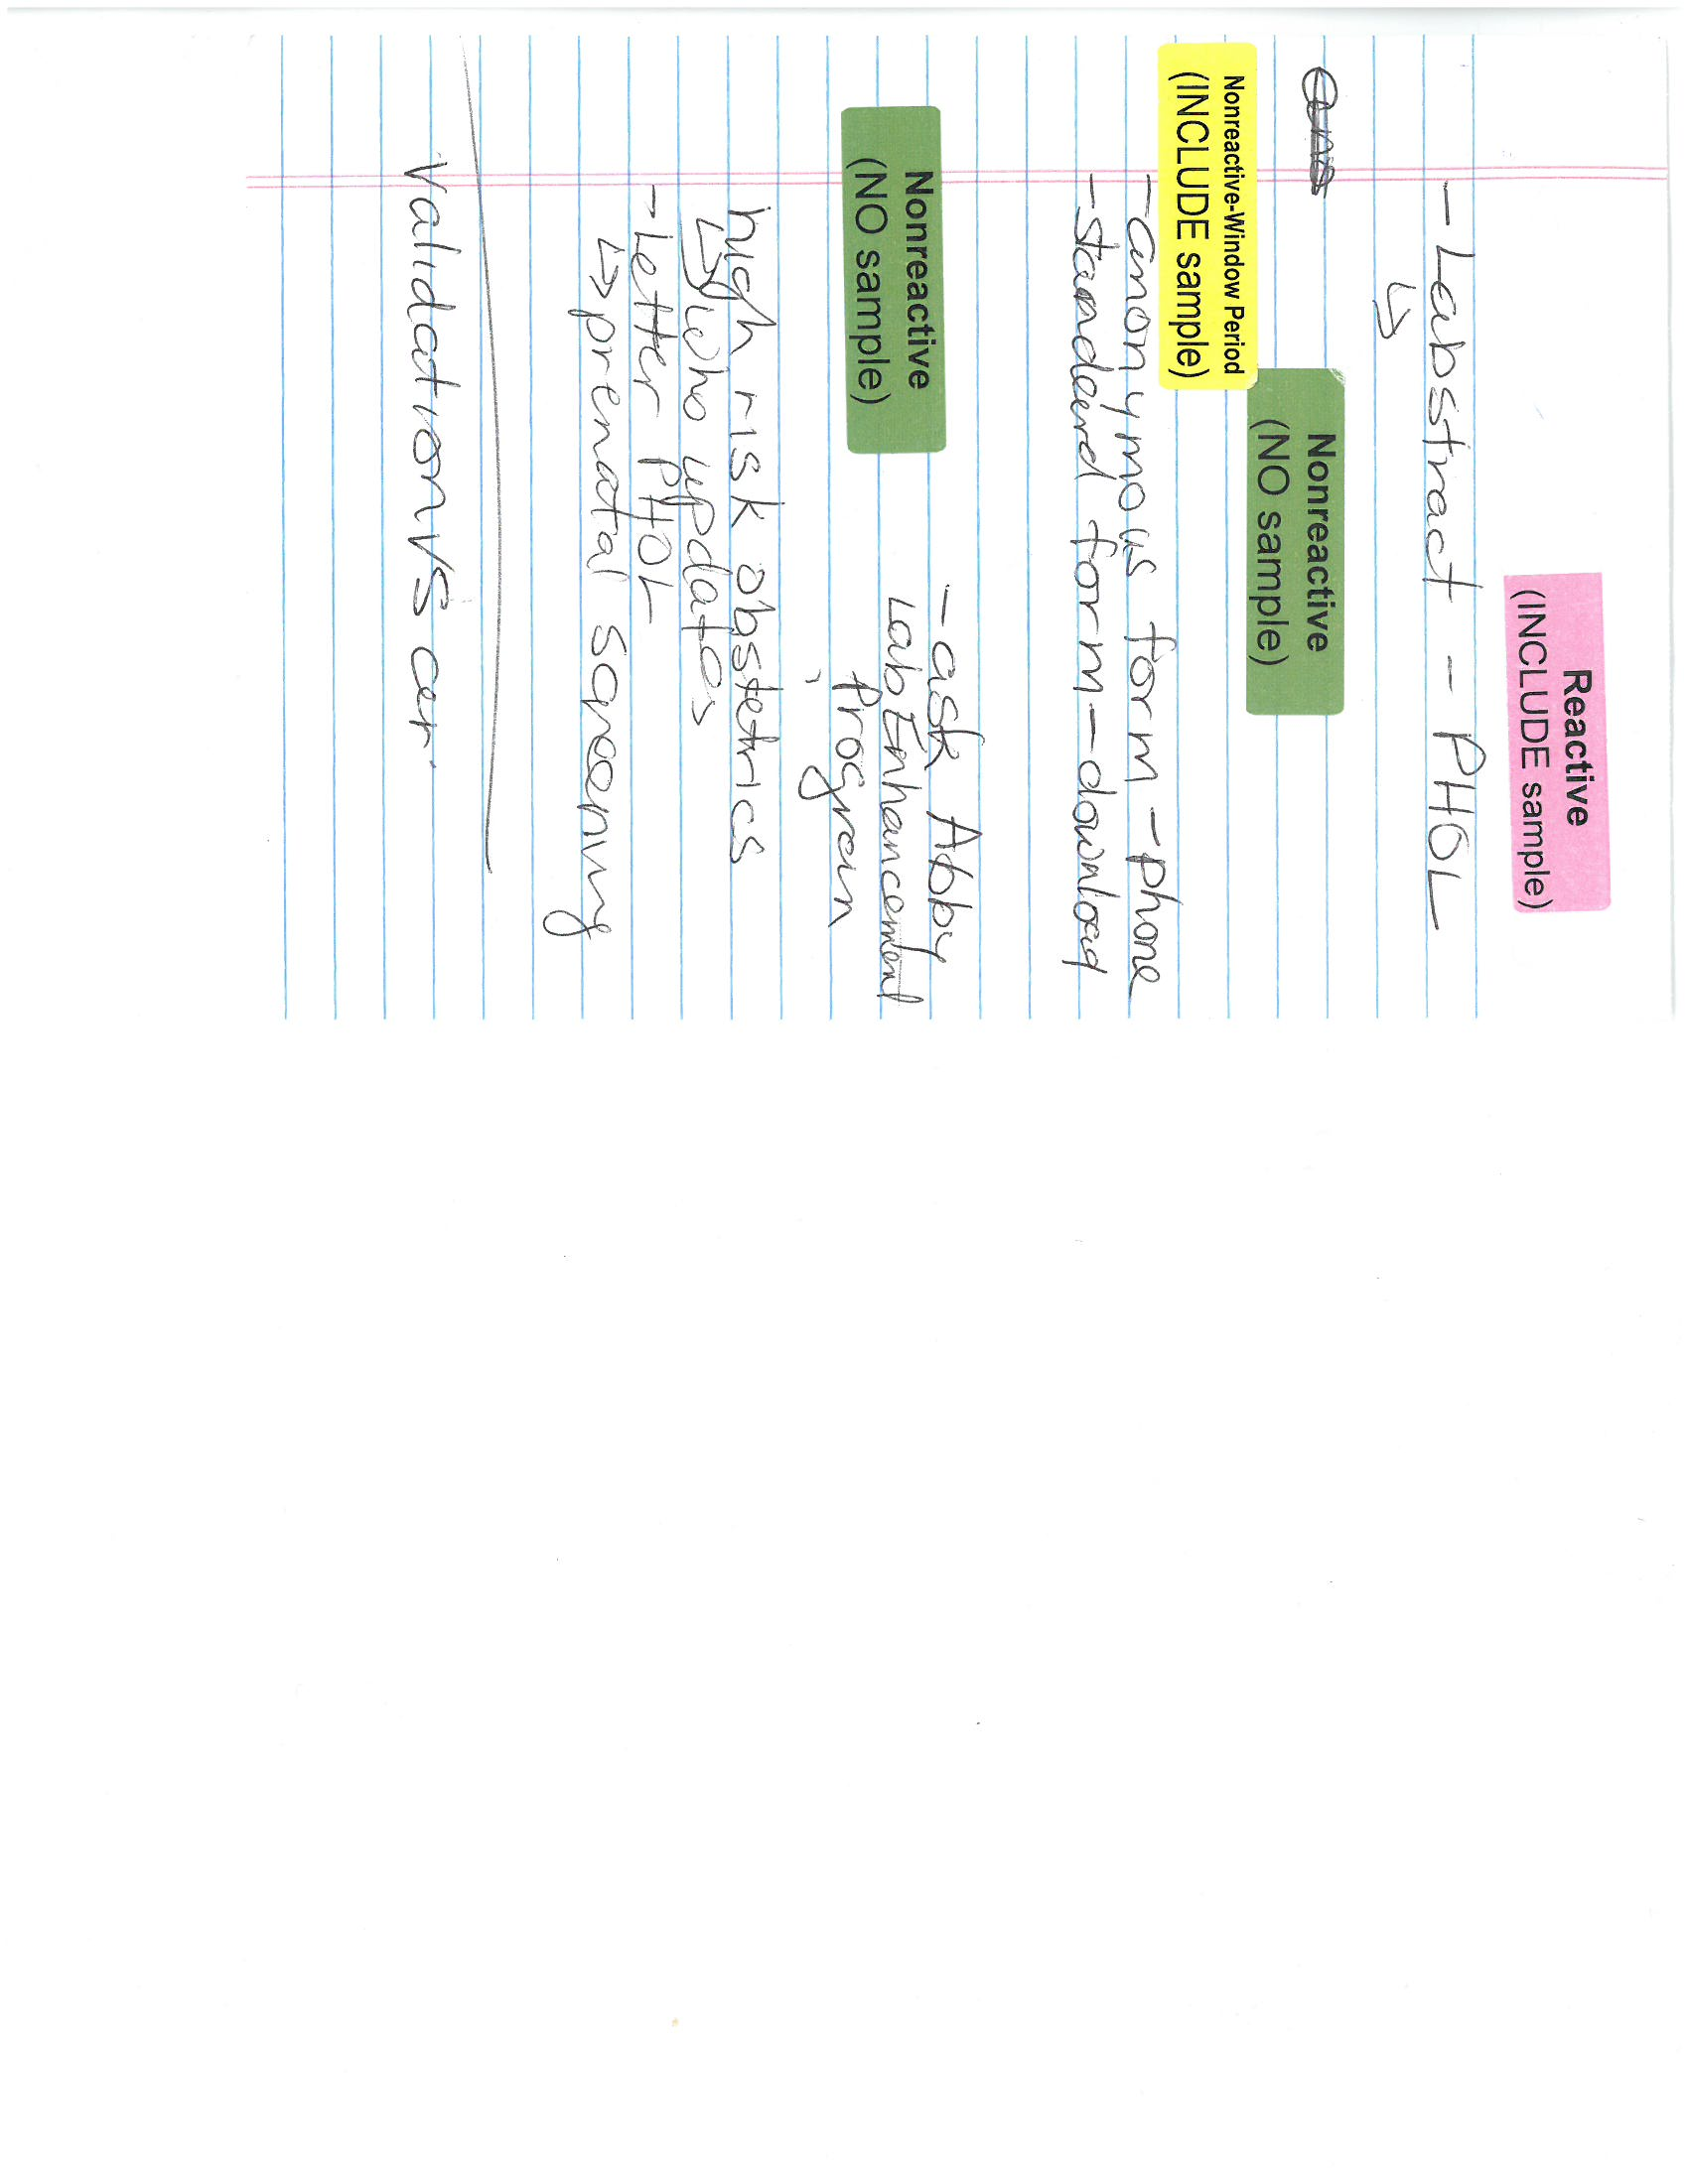 Reactive
(INCLUDE sample)
- Labstract - PHOL
↳
Nonreactive
(NO sample)
Nonreactive-Window Period
(INCLUDE sample)
- anonymous form - phone
- standard form - download
Nonreactive
(NO sample)
- ask Abby
Lab Enhancement
Program
high risk obstetrics
↳ who updates
- Letter PHOL
↳ prenatal screening
Validation VS cer.